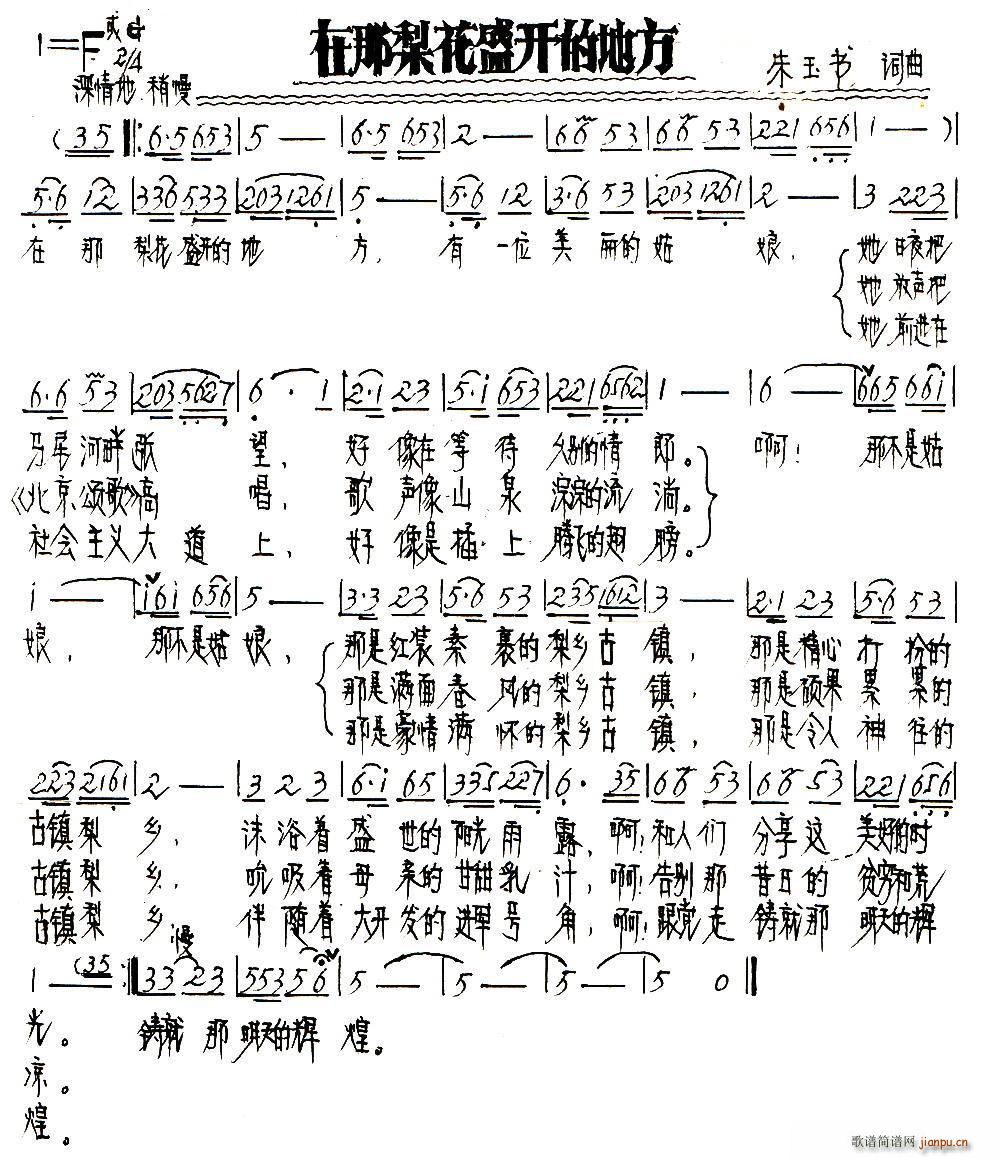 在那梨花盛开的地方
1=F或G 2/4
朱玉书 词曲
深情地 稍慢
( 35 ‖: 6·5 653 | 5 — | 6·5 653 | 2 — | 66 53 | 66 53 | 221 656 | 1 — ) |
5·6 12 | 336 533 | 203 1261 | 5 — | 5·6 12 | 3·6 53 | 203 1261 | 2 — | 3 223 |
在那 梨花盛开的地 方, 有一位美丽的姑 娘, 她日夜把
她放声把
她前进在
6·6 53 | 203 5627 | 6 · 1 | 2·1 23 | 5·i 653 | 221 6562 | 1 — | 6 — | 665 66i |
马尾河畔张 望, 好像在等待久别的情郎。 啊! 那不是姑
《北京颂歌》高 唱, 歌声像山泉淙淙的流淌。
社会主义大道 上, 好像是插上腾飞的翅膀。
i — | i6i 656 | 5 — | 3·3 23 | 5·6 53 | 235 1612 | 3 — | 2·1 23 | 5·6 53 |
娘, 那不是姑娘, 那是红装素裹的梨乡古镇, 那是精心打扮的
那是满面春风的梨乡古镇, 那是硕果累累的
那是豪情满怀的梨乡古镇, 那是令人神往的
223 2161 | 2 — | 3 2 3 | 6·i 65 | 335 227 | 6· 35 | 66 53 | 66 53 | 221 656 |
古镇梨 乡, 沐浴着盛世的阳光雨露, 啊!和人们分享这美好的时
古镇梨 乡, 吮吸着母亲的甘甜乳汁, 啊!告别那昔日的贫穷和荒
古镇梨 乡, 伴随着大开发的进军号角, 啊!跟党走铸就那明天的辉
慢
1 — (35 :‖ 33 23 | 553 56 | 5 — | 5 — | 5 — | 5 0 ‖
光。 铸就那明天的辉 煌。
凉。
煌。
歌谱简谱网 jianpu.cn